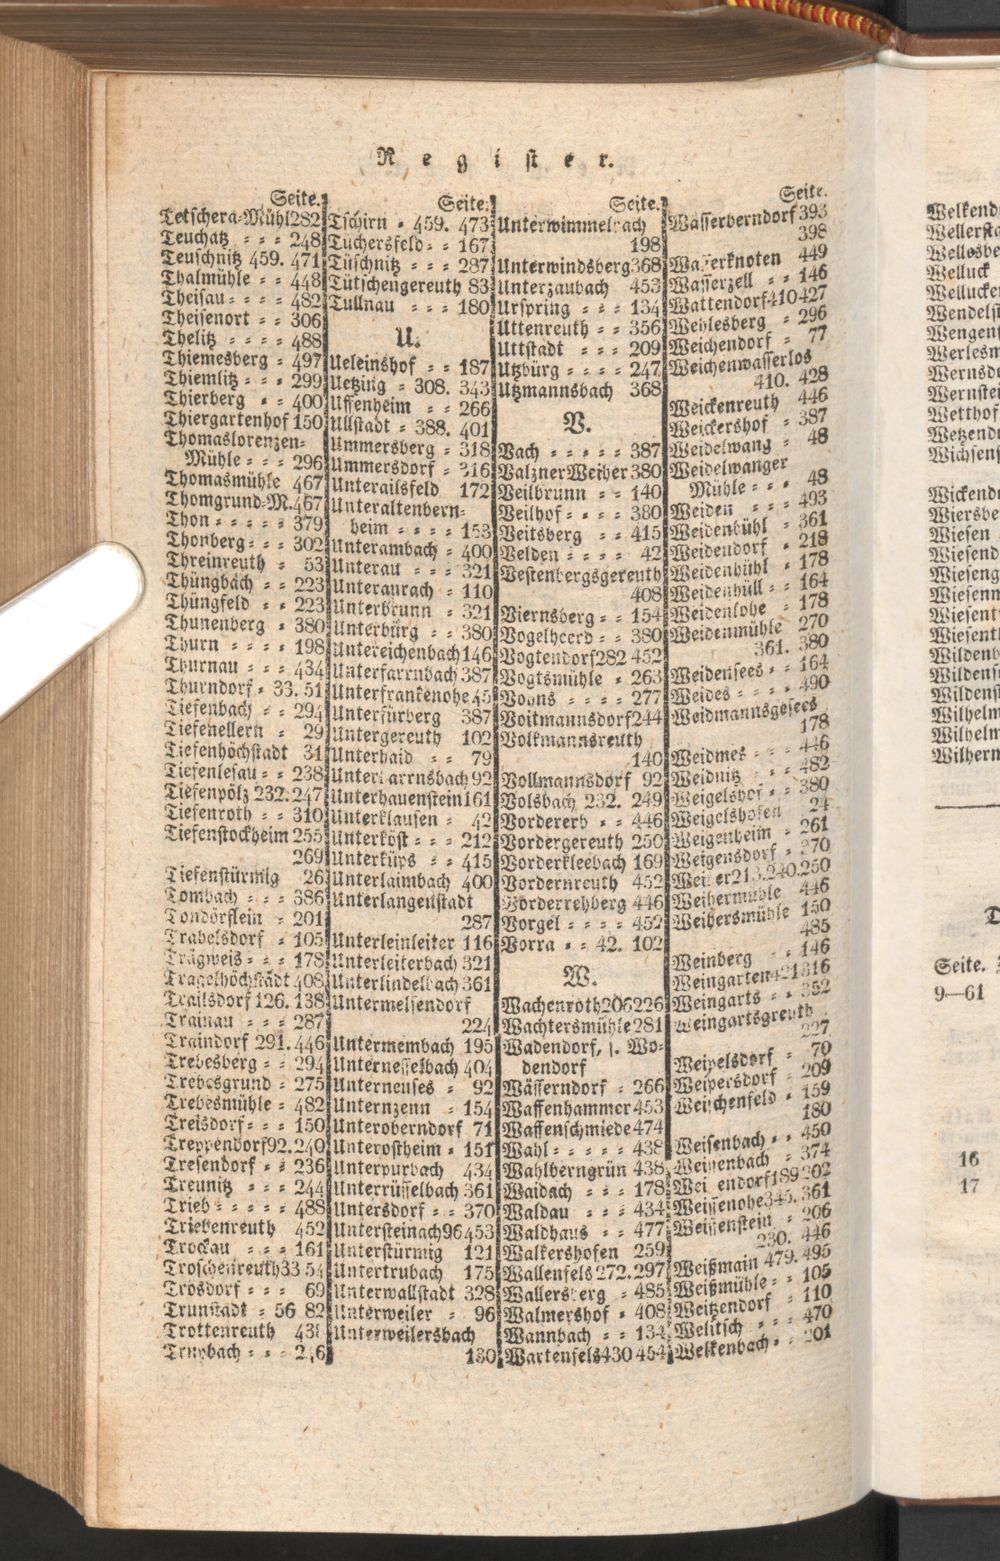 Register.
Seite.
Tetschera-Mühl 282
Teuchatz - - - 248
Teuschnitz 459. 471
Thalmühle - - 448
Theisau - - - - 482
Theisenort - - 306
Thelitz - - - - 488
Thiemesberg - 497
Thiemlitz - - - 299
Thierberg - - 400
Thiergartenhof 150
Thomaslorenzen-
Mühle - - - 296
Thomasmühle 467
Thomgrund-M. 467
Thon - - - - - 379
Thonberg - - - 302
Threinreuth - 53
Thüngbach - - 223
Thüngfeld - - 223
Thunenberg - 380
Thurn - - - - 198
Thurnau - - - 434
Thurndorf - 33. 51
Tiefenbach - - 294
Tiefenellern - 29
Tiefenhöchstadt 31
Tiefenlesau - - 238
Tiefenpölz 232. 247
Tiefenroth - - 310
Tiefenstockheim 255
269
Tiefenstürmig 26
Tombach - - - 386
Tondörflein - 201
Trabelsdorf - 105
Trägweis - - - 178
Tragelhöchstädt 408
Trailsdorf 126. 138
Trainau - - - 287
Traindorf 291. 446
Trebesberg - - 294
Trebesgrund - 275
Trebesmühle - 482
Treisdorf - - - 150
Treppendorf 92. 240
Tresendorf - - 236
Treunitz - - - 244
Trieb - - - - - 488
Triebenreuth 452
Trockau - - - 161
Troschenreuth 33 54
Trosdorf - - - 69
Trunstadt - 56 82
Trottenreuth
Seite.
Tschirn - 459. 473
Tüchersfeld - - 167
Tüschnitz - - - 287
Tütschengereuth 83
Tullnau - - - 180
U.
Ueleinshof - - 187
Uetzing - 308. 343
Uffenheim - - 266
Ullstadt - 388. 401
Ummersberg - 318
Ummersdorf - 316
Unterailsfeld 172
Unteraltenbern-
heim - - - - 153
Unterambach - 400
Unterau - - - 321
Unteraurach - 110
Unterbrunn - 321
Unterbürg - - 380
Untereichenbach 146
Unterfarrnbach 387
Unterfrankenohe 45
Unterfürberg 387
Untergereuth 102
Unterhaid - - 79
92
Unterhauenstein 161
Unterklausen - 42
Unterköst - - - 212
Unterküps - - 415
Unterlaimbach 400
Unterlangenstadt
287
Unterleinleiter 116
Unterleiterbach 321
Unterlindelbach 361
Untermelsendorf
224
Untermembach 195
Unternesselbach 404
Unterneuses - 92
Unternzenn - 154
Unteroberndorf 71
Unterostheim - 151
Unterpurbach 434
Unterrüsselbach 361
Untersdorf - - 370
Untersteinach 96 453
Unterstürmig 121
Untertrubach 175
Unterwallstadt 328
Unterweiler - 96
Unterweilersbach
130
Seite.
Unterwimmelbach
198
Unterwindsberg 368
Unterzaubach 453
Urspring - - - 134
Uttenreuth - - 356
Uttstadt - - - 209
Utzbürg - - - - 247
Utzmannsbach 368
V.
Vach - - - - - 387
Valzner Weiher 380
Veilbrunn - - 140
Veilhof - - - - 380
Veitsberg - - 415
Velden - - - - 42
Vestenbergsgereuth
408
Viernsberg - - 154
Vogelheerd - - 380
Vogtendorf 282 452
Vogtsmühle - 263
- - - - 277
Voitmannsdorf 244
Volkmannsreuth
140
Vollmannsdorf 92
Volsbach 232. 249
Vordererb - - 446
Vordergereuth 250
Vorderkleebach 169
Vordernreuth 452
Vorderrehberg 446
Vorgel - - - - 452
Vorra - - 42. 102
W.
Wachenroth 206 226
Wachtersmühle 281
Wadendorf, s. Wo-
dendorf
Wässerndorf - 266
Waffenhammer 453
Waffenschmiede 474
Wahl - - - - - 438
Wahlberngrün 438
Waidach - - - 178
Waldau - - - 434
Waldhaus - - 477
Walkershofen 259
Wallenfels 272. 297
Wallersberg - 485
Walmershof - 408
Wannbach - - 134
Wartenfels 430 454
Seite.
Wasserberndorf 393
398
Wasserknoten 449
Wasserzell - - 146
Wattendorf 410 427
Wehlesberg - 296
Weichendorf - 77
Weichenwasserlos
410. 428
Weickenreuth 446
Weickershof - 387
Weidelwang - 48
Weidelwanger
Mühle - - - 48
Weiden - - - 493
Weidenbühl - 361
Weidendorf - 218
Weidenhühl - 178
Weidenhüll - - 164
Weidenlohe - 178
Weidenmühle 270
361. 380
Weidensees - - 164
Weides - - - - 490
Weidmannsgesees
178
Weidmes - - - 446
Weidnitz - - - 482
Weigelshof - - 380
Weigelshofen 24
Weigenheim - 261
Weigensdorf - 270
Weiher 213. 240. 250
Weihermühle 446
Weihersmühle 150
485
Weinberg - - 146
Weingarten 421 316
Weingarts - - 352
Weingartsgreuth
227
Weipelsdorf - 70
Weipersdorf - 209
Weischenfeld - 159
180
Weisenbach - - 450
Weisenbach - 374
Weisendorf 189 202
Weissenohe 345. 361
Weissenstein - 206
230. 446
Weißmain 479. 495
Weißmühle - - 105
Weitzendorf - 110
Welitsch - - - 470
Welkenbach - - 201
Seite.
9—61
16
17